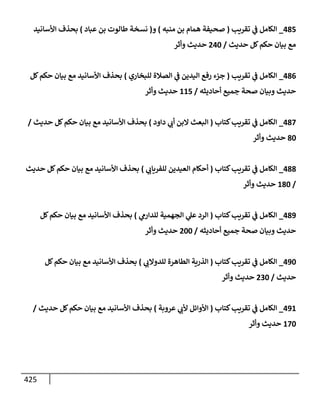 485_ الكامل في تقريب ( صحيفة همام بن منبه ) و( نسخة طالوت بن عباد ) بحذف الأسانيد
مع بيان حكم كل حديث / 240 حديث وأثر
486_ الكامل في تقريب ( جزء رفع اليدين في الصلاة للبخاري ) بحذف الأسانيد مع بيان حكم كل
حديث وبيان صحة جميع أحاديثه / 115 حديث وأثر
487_ الكامل في تقريب كتاب ( البعث لابن أبي داود ) بحذف الأسانيد مع بيان حكم كل حديث /
80 حديث وأثر
488_ الكامل في تقريب كتاب ( أحكام العيدين للفريابي ) بحذف الأسانيد مع بيان حكم كل حديث
/ 180 حديث وأثر
489_ الكامل في تقريب كتاب ( الرد علي الجهمية للدارمي ) بحذف الأسانيد مع بيان حكم كل
حديث وبيان صحة جميع أحاديثه / 200 حديث وأثر
490_ الكامل في تقريب كتاب ( الذرية الطاهرة للدولابي ) بحذف الأسانيد مع بيان حكم كل
حديث / 230 حديث وأثر
491_ الكامل في تقريب كتاب ( الأوائل لأبي عروبة ) بحذف الأسانيد مع بيان حكم كل حديث /
170 حديث وأثر
425